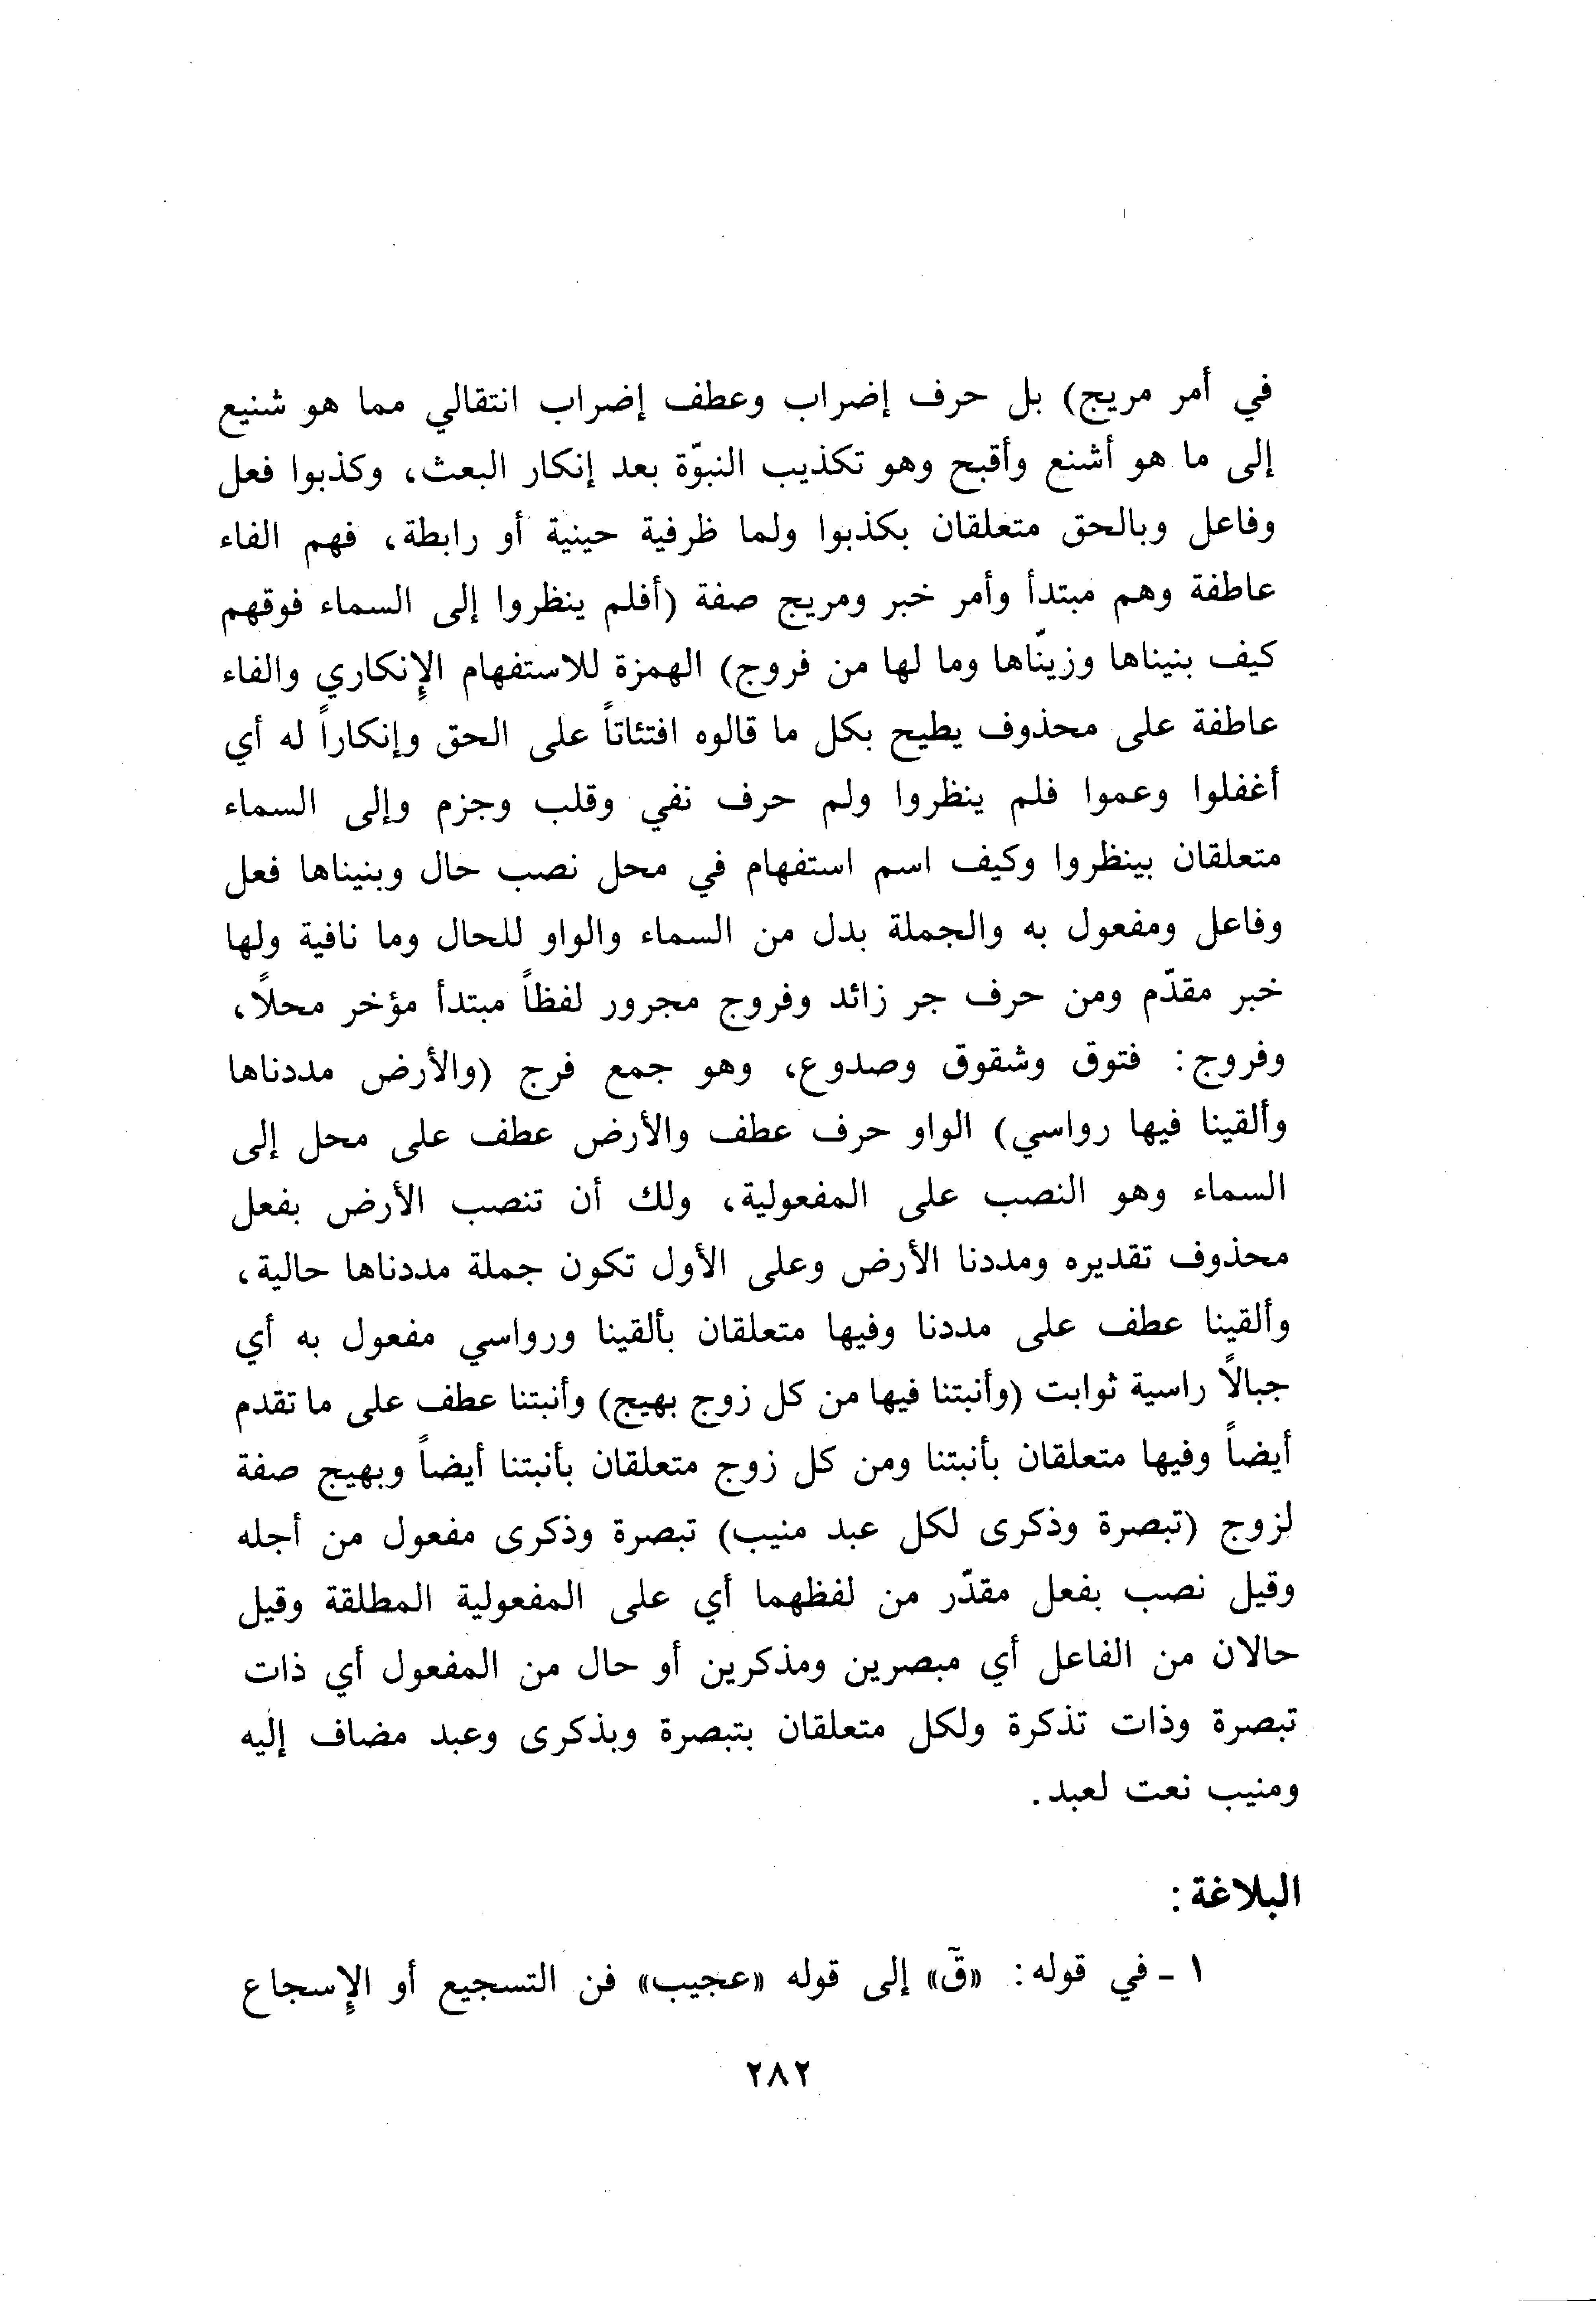 في أمر مريج) بل حرف إضراب وعطف إضراب انتقالي مما هو شنيع
إلى ما هو أشنع وأقبح وهو تكذيب النبوّة بعد إنكار البعث، وكذبوا فعل
وفاعل وبالحق متعلقان بكذبوا ولما ظرفية حينية أو رابطة، فهم الفاء
عاطفة وهم مبتدأ وأمر خبر ومريج صفة (أفلم ينظروا إلى السماء فوقهم
كيف بنيناها وزينّاها وما لها من فروج) الهمزة للاستفهام الإنكاري والفاء
عاطفة على محذوف يطيح بكل ما قالوه افتئاتاً على الحق وإنكاراً له أي
أغفلوا وعموا فلم ينظروا ولم حرف نفي وقلب وجزم وإلى السماء
متعلقان بينظروا وكيف اسم استفهام في محل نصب حال وبنيناها فعل
وفاعل ومفعول به والجملة بدل من السماء والواو للحال وما نافية ولها
خبر مقدّم ومن حرف جر زائد وفروج مجرور لفظاً مبتدأ مؤخر محلاً،
وفروج: فتوق وشقوق وصدوع، وهو جمع فرج (والأرض مددناها
وألقينا فيها رواسي) الواو حرف عطف والأرض عطف على محل إلى
السماء وهو النصب على المفعولية، ولك أن تنصب الأرض بفعل
محذوف تقديره ومددنا الأرض وعلى الأول تكون جملة مددناها حالية،
وألقينا عطف على مددنا وفيها متعلقان بألقينا ورواسي مفعول به أي
جبالاً راسية ثوابت (وأنبتنا فيها من كل زوج بهيج) وأنبتنا عطف على ما تقدم
أيضاً وفيها متعلقان بأنبتنا ومن كل زوج متعلقان بأنبتنا أيضاً وبهيج صفة
لزوج (تبصرة وذكرى لكل عبد منيب) تبصرة وذكرى مفعول من أجله
وقيل نصب بفعل مقدّر من لفظهما أي على المفعولية المطلقة وقيل
حالان من الفاعل أي مبصرين ومذكرين أو حال من المفعول أي ذات
تبصرة وذات تذكرة ولكل متعلقان بتبصرة وبذكرى وعبد مضاف إليه
ومنيب نعت لعبد.
البلاغة:
١ - في قوله: «قۤ» إلى قوله «عجيب» فن التسجيع أو الإسجاع
٢٨٢